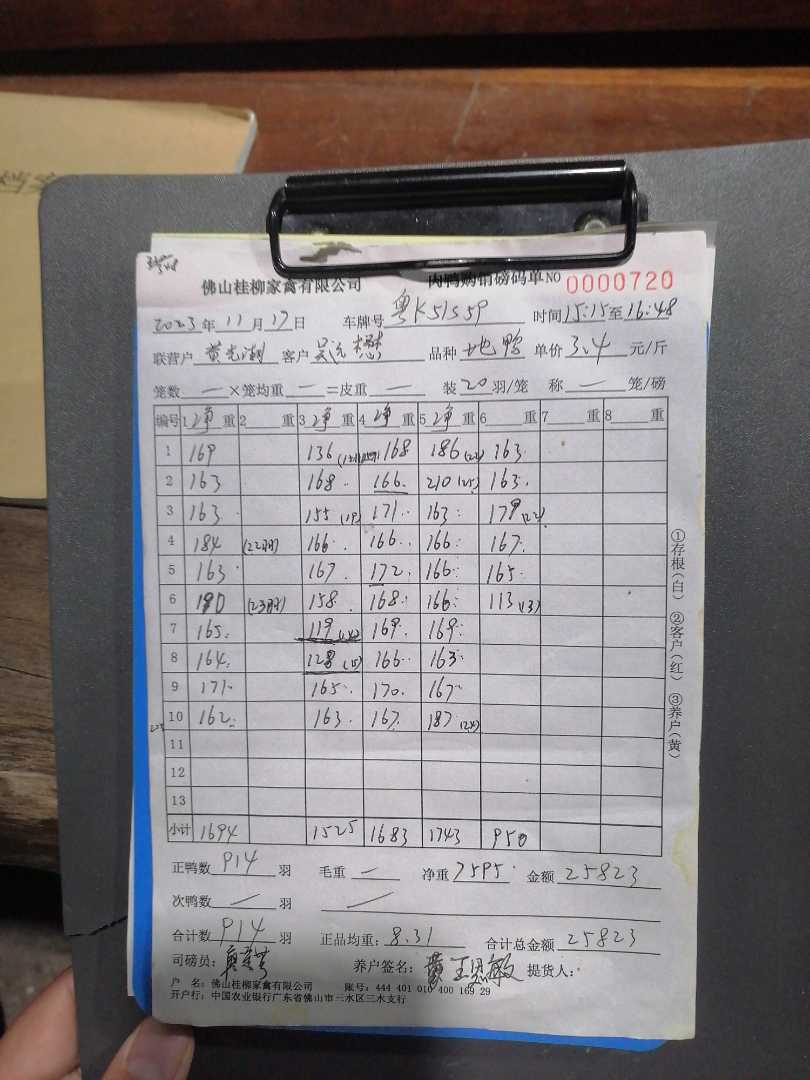 佛山桂柳家禽有限公司 肉鸭购销磅码单 NO 0000720
2023年11月17日 车牌号 粤K51S59 时间15:15至16:48
联营户 客户 品种 地鸭 单价 3.4 元/斤
笼数 — ×笼均重 — =皮重 — 装20羽/笼 称 — 笼/磅
编号 1净重 2 重 3净重 4净重 5净重 6 重 7 重 8 重
1 169 136 168 186 163
2 163 168 166 210 (25) 163
3 163 155 (19) 171 163 179 (22)
4 184 (22羽) 166 166 166 167
5 163 167 172 166 165
6 190 (23羽) 158 168 166 113 (13)
7 165 119 (14) 169 169
8 164 128 (15) 166 163
9 171 165 170 167
10 162 163 167 187
11
12
13
小计 1694 1525 1683 1743 950
①存根(白) ②客户(红) ③养户(黄)
正鸭数 914 羽 毛重 — 净重 7595 金额 25823
次鸭数 — 羽
合计数 914 羽 正品均重: 8.31 合计总金额 25823
司磅员: 养户签名: 提货人:
户 名: 佛山桂柳家禽有限公司 账号: 444 401 010 400 169 29
开户行: 中国农业银行广东省佛山市三水区三水支行